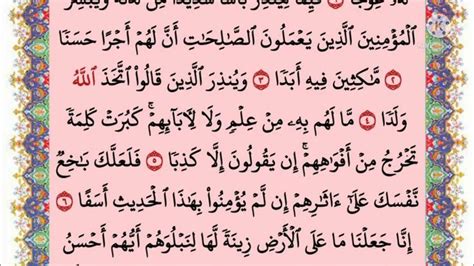 قَيِّمًا لِّيُنذِرَ بَأْسًا شَدِيدًا مِّن
ٱلْمُؤْمِنِينَ ٱلَّذِينَ يَعْمَلُونَ ٱلصَّـٰلِحَـٰتِ أَنَّ لَهُمْ أَجْرًا حَسَنًا
٢ مَّـٰكِثِينَ فِيهِ أَبَدًا ٣ وَيُنذِرَ ٱلَّذِينَ قَالُوا۟ ٱتَّخَذَ ٱللَّهُ
وَلَدًا ٤ مَّا لَهُم بِهِۦ مِنْ عِلْمٍ وَلَا لِـَٔابَآئِهِمْ ۚ كَبُرَتْ كَلِمَةً
تَخْرُجُ مِنْ أَفْوَٰهِهِمْ ۚ إِن يَقُولُونَ إِلَّا كَذِبًا ٥ فَلَعَلَّكَ بَـٰخِعٌ
نَّفْسَكَ عَلَىٰٓ ءَاثَـٰرِهِمْ إِن لَّمْ يُؤْمِنُوا۟ بِهَـٰذَا ٱلْحَدِيثِ أَسَفًا ٦
إِنَّا جَعَلْنَا مَا عَلَى ٱلْأَرْضِ زِينَةً لَّهَا لِنَبْلُوَهُمْ أَيُّهُمْ أَحْسَنُ